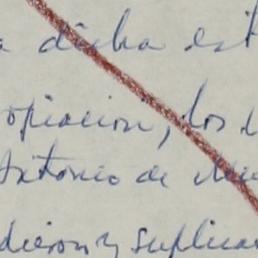 a dicha est
opiacion, los
Antonio de
dieron y suplicar